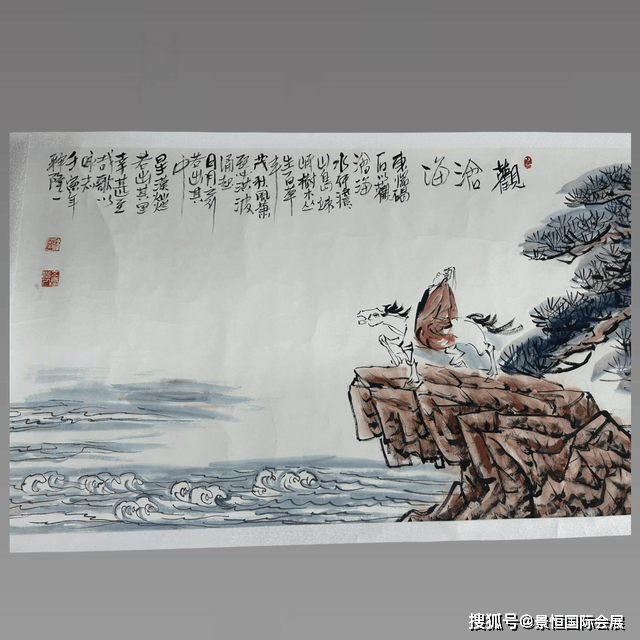 觀滄海
東臨碣
石以觀
滄海
水何澹
山島竦
峙樹木丛
生百草
丰
茂秋風蕭
瑟洪波
涌起
日月之行
若出其
中
星漢燦爛
若出其里
幸甚至
哉歌以
咏志
壬寅年
搜狐号@景恒国际会展